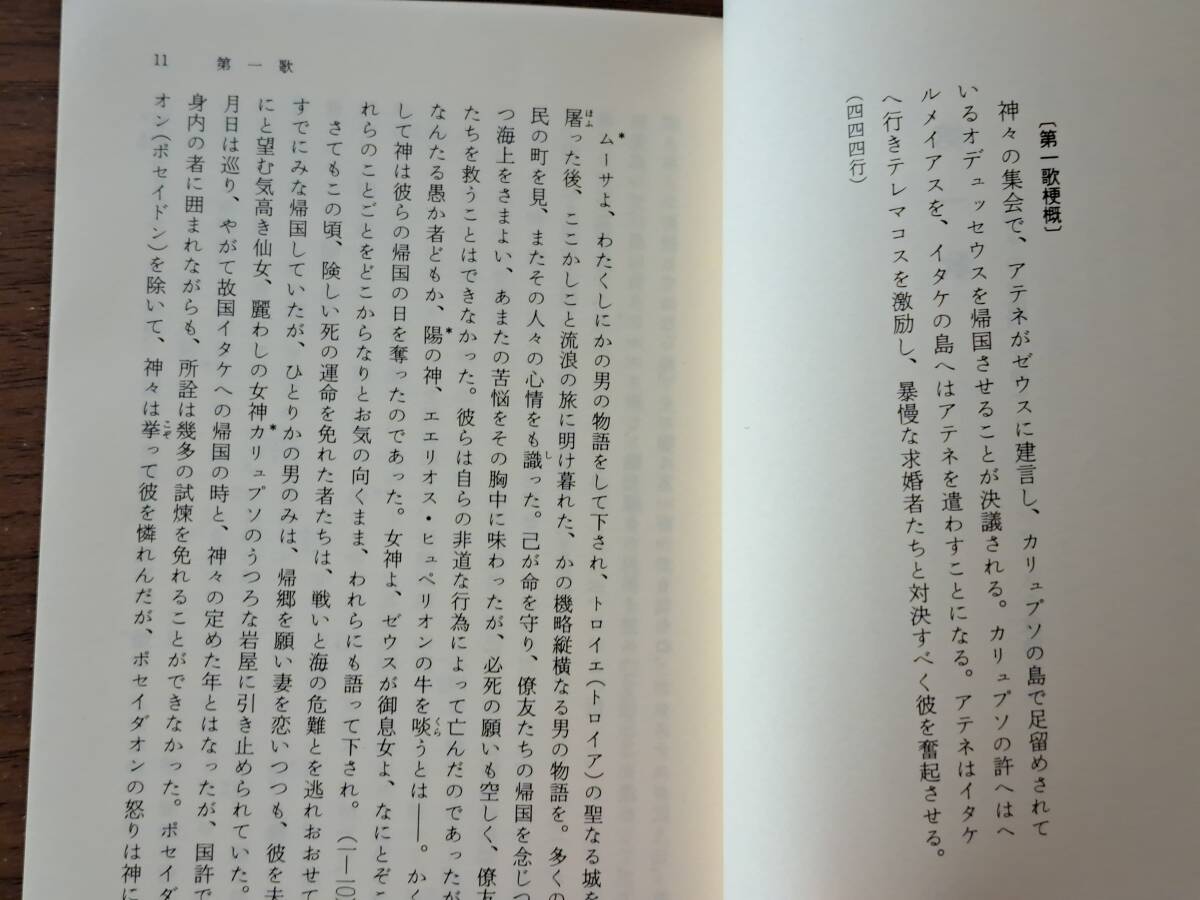 〔第一歌梗概〕
神々の集会で、アテネがゼウスに建言し、カリュプソの島で足留めされて
いるオデュッセウスを帰国させることが決議される。カリュプソの許へはヘ
ルメイアスを、イタケの島へはアテネを遣わすことになる。アテネはイタケ
へ行きテレマコスを激励し、暴慢な求婚者たちと対決すべく彼を奮起させる。
(四四四行)
11 第一歌
ムーサよ、わたくしにかの男の物語をして下され、トロイエ(トロイア)の聖なる城を
屠った後、ここかしこと流浪の旅に明け暮れた、かの機略縦横なる男の物語を。多くの
民の町を見、またその人々の心情をも識った。己が命を守り、僚友たちの帰国を念じつ
つ海上をさまよい、あまたの苦悩をその胸中に味わったが、必死の願いも空しく、僚友
たちを救うことはできなかった。彼らは自らの非道な行為によって亡んだのであったが
なんたる愚か者どもか、陽の神、エエリオス・ヒュペリオンの牛を啖うとは――。かく
して神は彼らの帰国の日を奪ったのであった。女神よ、ゼウスが御息女よ、なにとぞこ
れらのことごとをどこからなりとお気の向くまま、われらにも語って下され。(一―一〇)
さてもこの頃、険しい死の運命を免れた者たちは、戦いと海の危難とを逃れおおせて
すでにみな帰国していたが、ひとりかの男のみは、帰郷を願い妻を恋いつつも、彼を夫
にと望む気高き仙女、麗わしの女神カリュプソのうつろな岩屋に引き止められていた。
月日は巡り、やがて故国イタケへの帰国の時と、神々の定めた年とはなったが、国許で
身内の者に囲まれながらも、所詮は幾多の試煉を免れることができなかった。ポセイダ
オン(ポセイドン)を除いて、神々は挙って彼を憐れんだが、ポセイダオンの怒りは神に